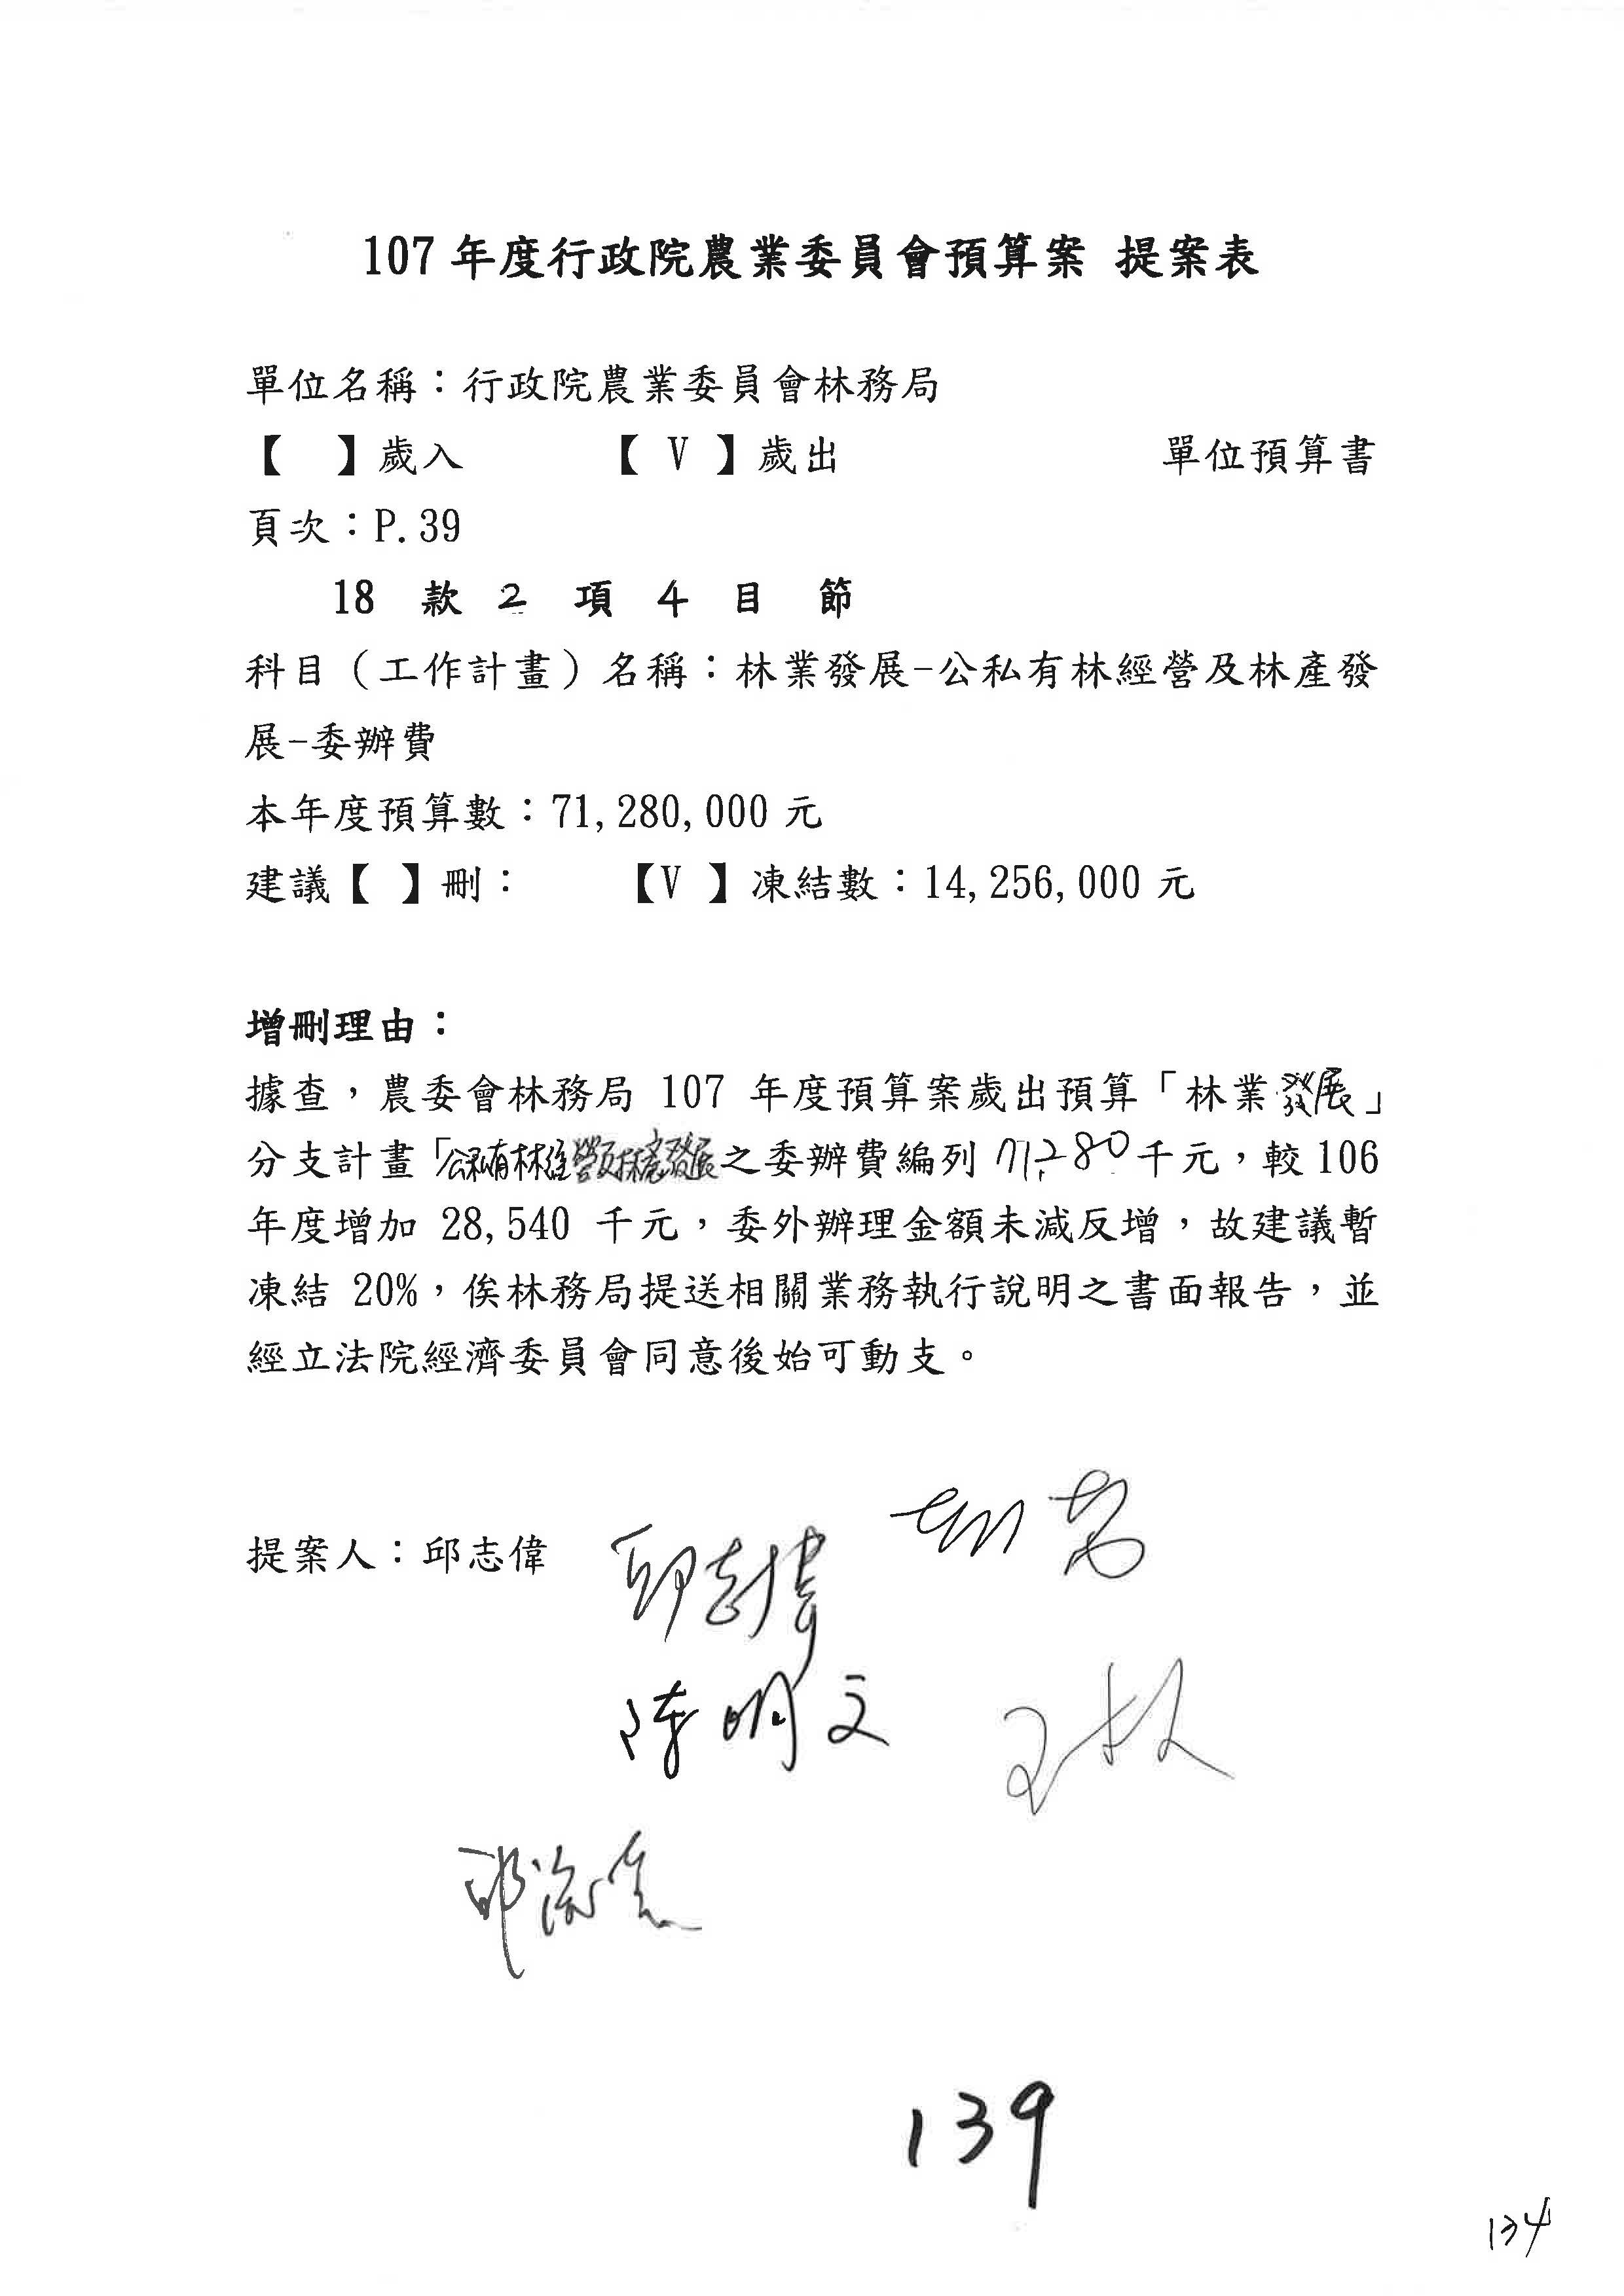 107 年度行政院農業委員會預算案 提案表
單位名稱：行政院農業委員會林務局
【 】歲入 【 V 】歲出 單位預算書
頁次：P.39
18 款 2 項 4 目 節
科目（工作計畫）名稱：林業發展-公私有林經營及林產發
展-委辦費
本年度預算數：71,280,000 元
建議【 】刪： 【V 】凍結數：14,256,000 元
增刪理由：
據查，農委會林務局 107 年度預算案歲出預算「林業發展」
分支計畫「公私有林經營及林產發展之委辦費編列 71,280千元，較 106
年度增加 28,540 千元，委外辦理金額未減反增，故建議暫
凍結 20%，俟林務局提送相關業務執行說明之書面報告，並
經立法院經濟委員會同意後始可動支。
提案人：邱志偉 邱志偉
陳明文
139
134